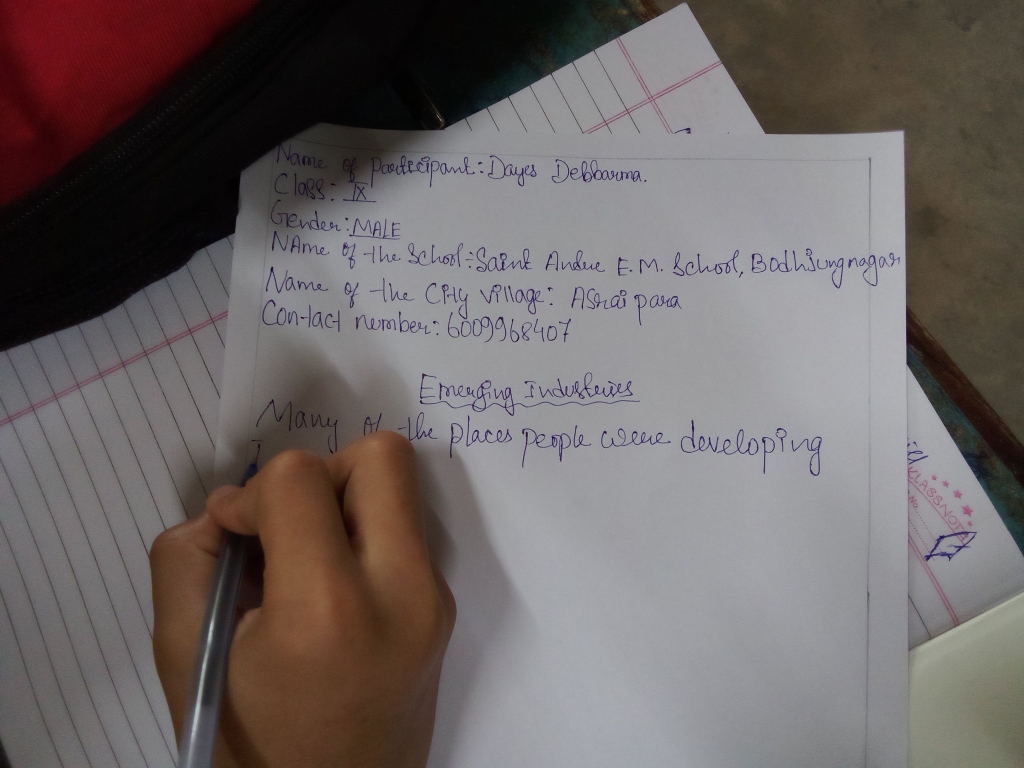 Name of participant: Dayes Debbarma.
Class: IX
Gender: MALE
NAme of the School: Saint Andre E.M. School, Bodhjungnagar
Name of the City Village: Asrai para
Contact number: 6009968407
Emerging Industeries
Many of the places people were developing
CLASSNOT
No.